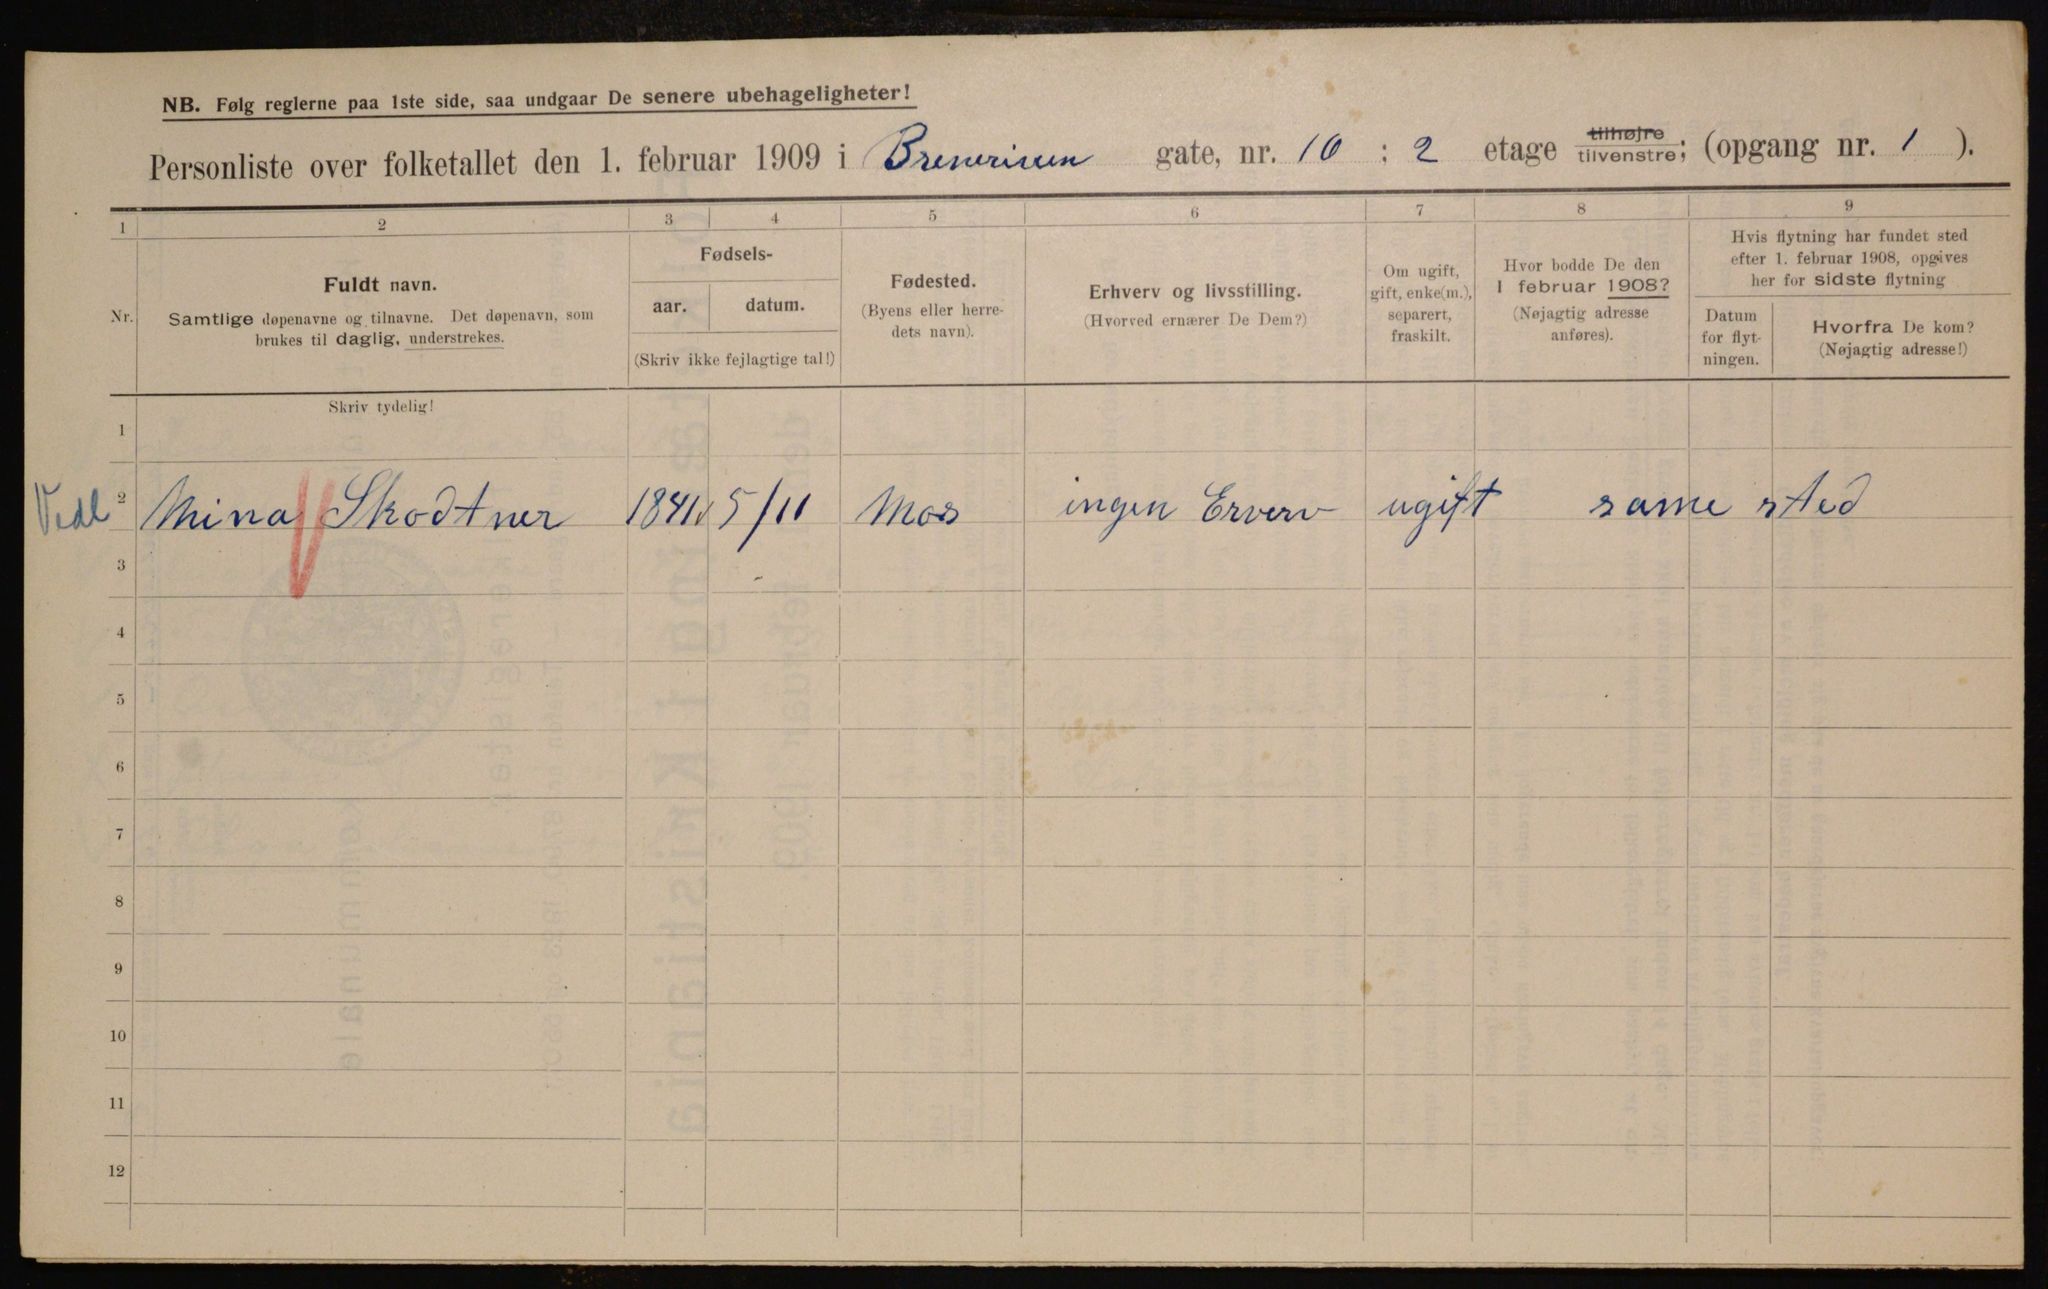 NB. Følg reglerne paa 1ste side, saa undgaar De senere ubehageligheter!
Personliste over folketallet den 1. februar 1909 i Breneriveien gate, nr. 10 : 2 etage tilhøjre tilvenstre; (opgang nr. 1 ).
1 2 3 4 5 6 7 8 9
Nr.
Fuldt navn.
Samtlige døpenavne og tilnavne. Det døpenavn, som
brukes til daglig, understrekes.
Fødsels-
aar. datum.
(Skriv ikke fejlagtige tal!)
Fødested.
(Byens eller herre-
dets navn).
Erhverv og livsstilling.
(Hvorved ernærer De Dem?)
Om ugift,
gift, enke(m.),
separert,
fraskilt.
Hvor bodde De den
1 februar 1908?
(Nøjagtig adresse
anføres).
Hvis flytning har fundet sted
efter 1. februar 1908, opgives
her for sidste flytning
Datum
for flyt-
ningen.
Hvorfra De kom?
(Nøjagtig adresse!)
Skriv tydelig!
1
Vedl 2 Mina Skodtner 1841 5/11 Mos ingen Erverv ugift same sted
3
4
5
6
7
8
9
10
11
12